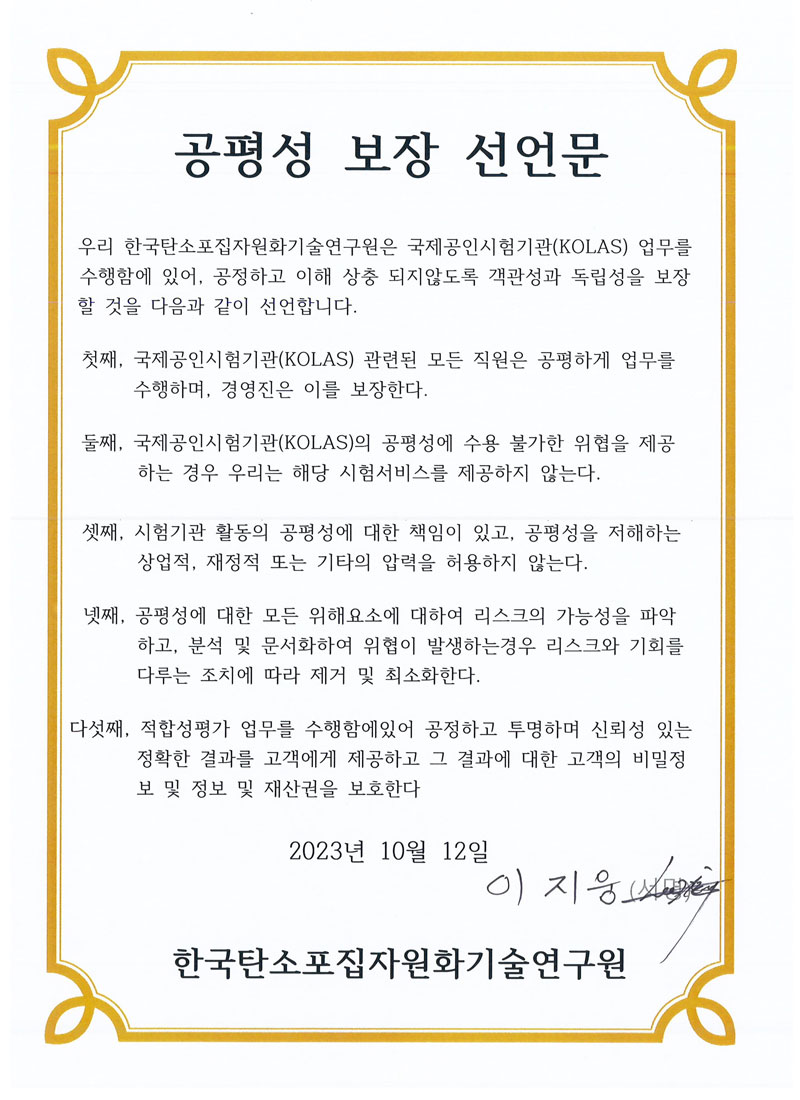 공평성 보장 선언문
우리 한국탄소포집자원화기술연구원은 국제공인시험기관(KOLAS) 업무를
수행함에 있어, 공정하고 이해 상충 되지않도록 객관성과 독립성을 보장
할 것을 다음과 같이 선언합니다.
첫째, 국제공인시험기관(KOLAS) 관련된 모든 직원은 공평하게 업무를
수행하며, 경영진은 이를 보장한다.
둘째, 국제공인시험기관(KOLAS)의 공평성에 수용 불가한 위협을 제공
하는 경우 우리는 해당 시험서비스를 제공하지 않는다.
셋째, 시험기관 활동의 공평성에 대한 책임이 있고, 공평성을 저해하는
상업적, 재정적 또는 기타의 압력을 허용하지 않는다.
넷째, 공평성에 대한 모든 위해요소에 대하여 리스크의 가능성을 파악
하고, 분석 및 문서화하여 위협이 발생하는경우 리스크와 기회를
다루는 조치에 따라 제거 및 최소화한다.
다섯째, 적합성평가 업무를 수행함에있어 공정하고 투명하며 신뢰성 있는
정확한 결과를 고객에게 제공하고 그 결과에 대한 고객의 비밀정
보 및 정보 및 재산권을 보호한다
2023년 10월 12일
이 지 웅 (서명)
한국탄소포집자원화기술연구원